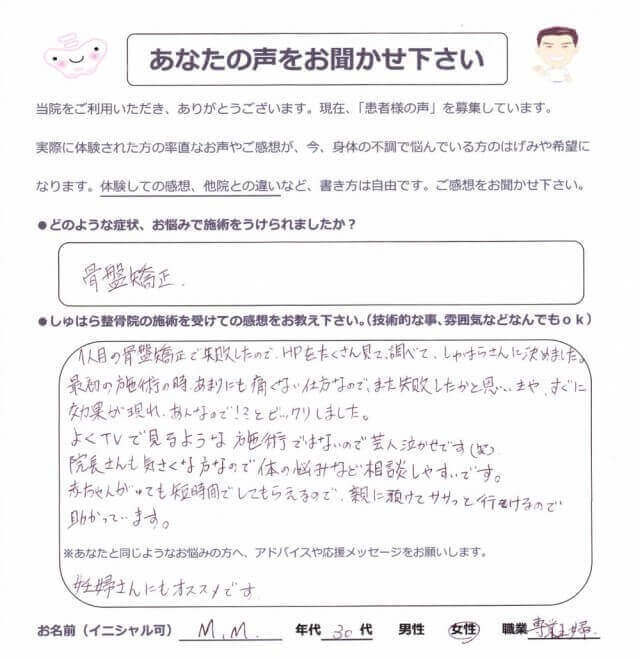 あなたの声をお聞かせ下さい
当院をご利用いただき、ありがとうございます。現在、「患者様の声」を募集しています。
実際に体験された方の率直なお声やご感想が、今、身体の不調で悩んでいる方のはげみや希望に
なります。体験しての感想、他院との違いなど、書き方は自由です。ご感想をお聞かせ下さい。
●どのような症状、お悩みで施術をうけられましたか？
骨盤矯正.
●しゅはら整骨院の施術を受けての感想をお教え下さい。（技術的な事、雰囲気などなんでもｏｋ）
1人目の骨盤矯正で失敗したので、HPをたくさん見て、調べて、しゅはらさんに決めました。
最初の施術の時、あまりにも痛くない仕方なので、また失敗したかと思いきや、すぐに
効果が現れ、あんなので！？とビックリしました。
よくTVで見るような施術ではないので芸人泣かせです(笑)
院長さんも気さくな方なので体の悩みなど相談しやすいです。
赤ちゃんがいても短時間でしてもらえるので、親に預けてササっと行けるので
助かっています。
※あなたと同じようなお悩みの方へ、アドバイスや応援メッセージをお願いします。
妊婦さんにもオススメです
お名前（イニシャル可） M.M. 年代 30 代 男性 女性 職業 専業主婦